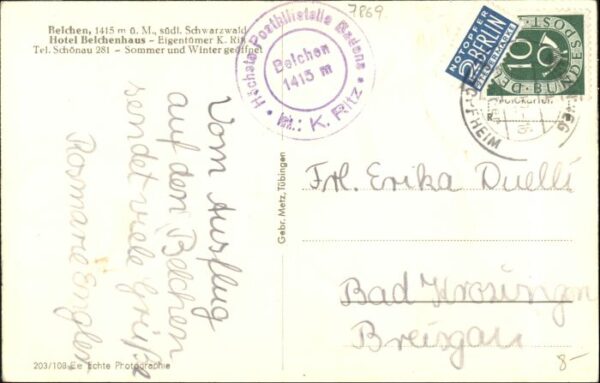 Belchen, 1415 m ü. M., südl. Schwarzwald
Hotel Belchenhaus – Eigentümer K. Ritz
Tel. Schönau 281 – Sommer und Winter geöffnet
Höchste Posthilfstelle Badens
Belchen
1415 m
K. Ritz
7869.
NOTOPFER
2 BERLIN
STEUERMARKE
DEUTSCHE BUNDESPOST
10
Vom Ausflug
auf den Belchen
sendet viele Grüße
Rosmarie Engler
Gebr. Metz, Tübingen
Frl. Erika Duelli
Bad Krozingen
Breisgau
203/108 Ee Echte Photographie
8-